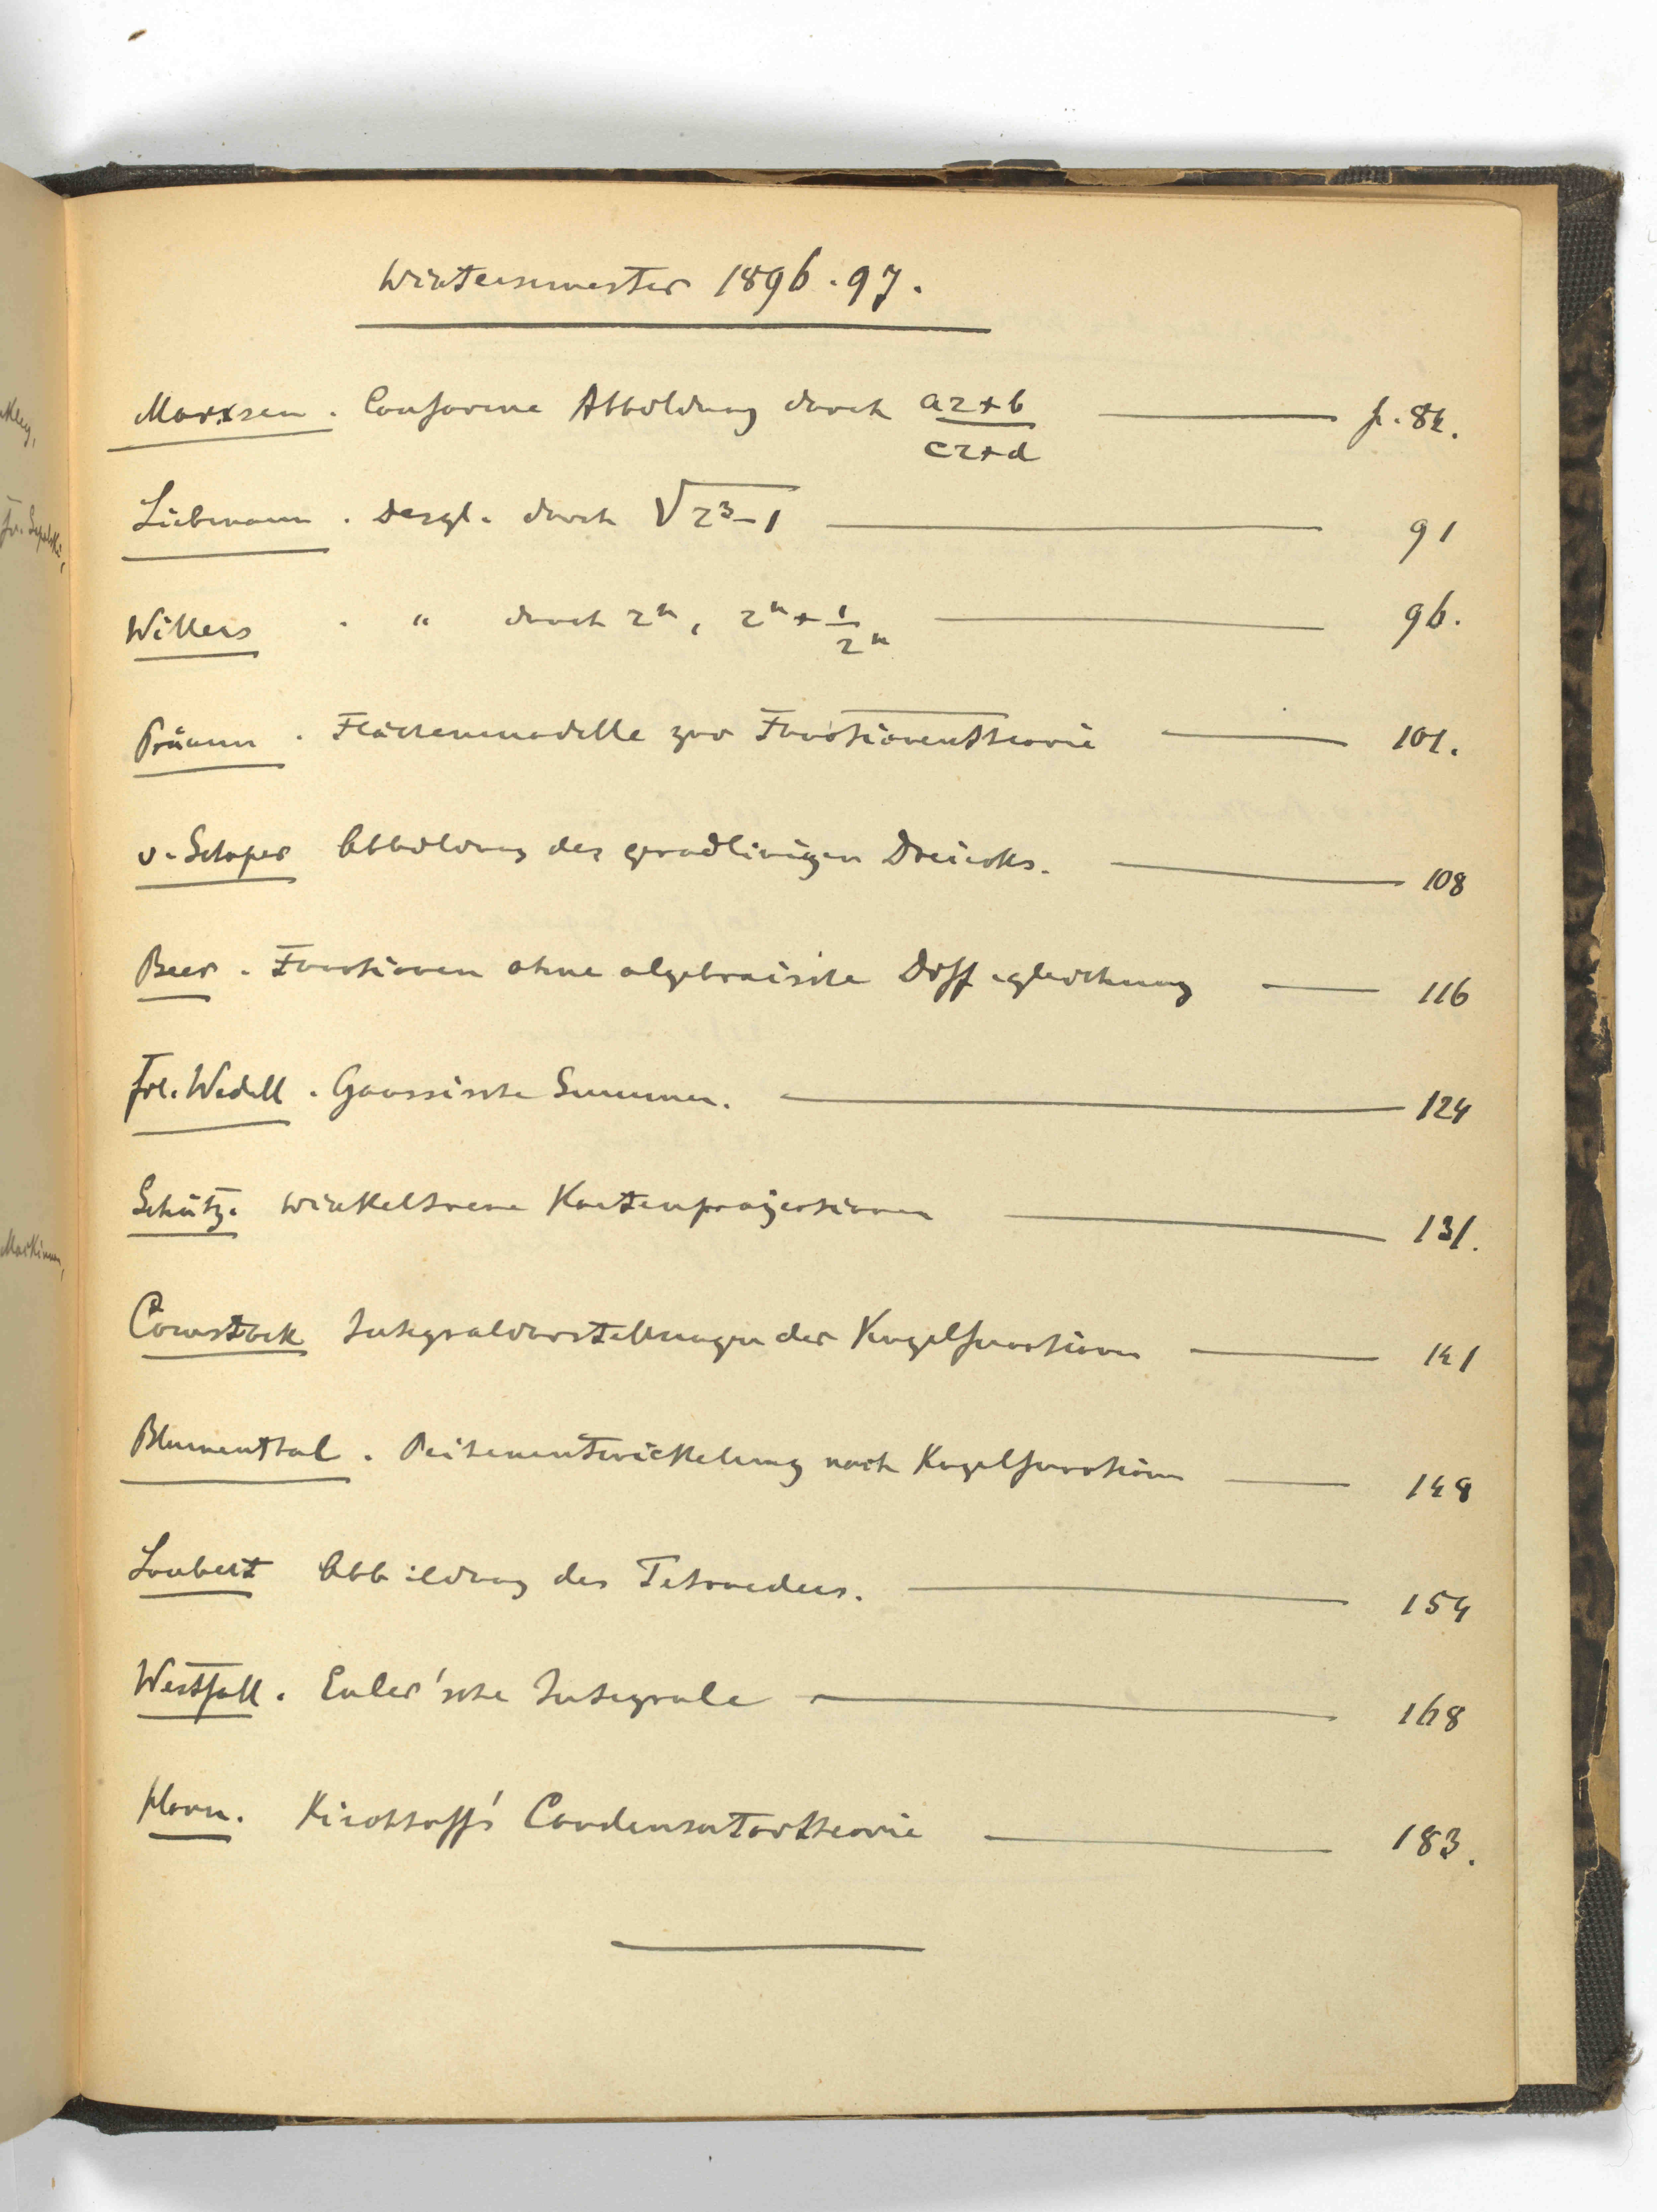 Wintersemester 1896.97.
Marxsen. Conforme Abbildung durch (az+b)/(cz+d) — p. 84.
Liebmann. Desgl. durch √(z³-1) — 91
Willers . " durch zⁿ, zⁿ+1/zⁿ — 96.
Prümm. Flächenmodelle zur Functionentheorie — 101.
v. Schaper Abbildung des gradlinigen Dreiecks. — 108
Beer. Functionen ohne algebraische Diffegleichung — 116
Frl. Wedell. Gaussische Summen. — 124
Schütz. Winkeltreue Kartenprojectionen — 131.
Comstock Integraldarstellungen der Kugelfunctionen — 141
Blumenthal. Reihenentwickelung nach Kugelfunctionen — 148
Laubert Abbildung des Tetraeders. — 154
Westfall. Euler'sche Integrale — 168
Horn. Kirchhoff's Condensatortheorie — 183.